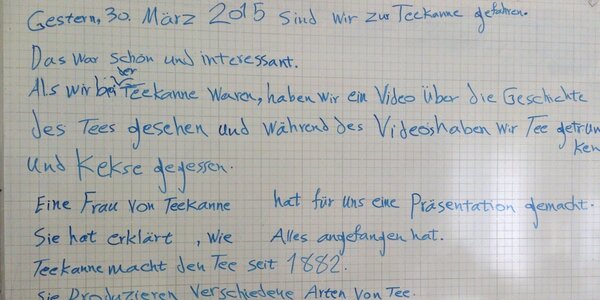 Gestern, 30. März 2015 sind wir zur Teekanne gefahren.
Das war schön und interessant.
Als wir bei der Teekanne waren, haben wir ein Video über die Geschichte
des Tees gesehen und während des Videos haben wir Tee getrun
ken
und Kekse gegessen.
Eine Frau von Teekanne hat für uns eine Präsentation gemacht.
Sie hat erklärt, wie Alles angefangen hat.
Teekanne macht den Tee seit 1882.
Sie Produzieren Verschiedene Arten von Tee.